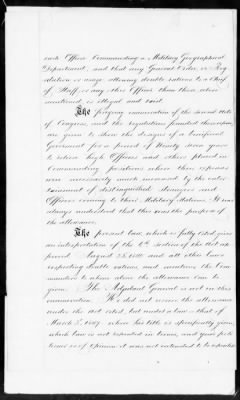 such Officer Commanding a Military Geographical
Department, and that any General Order, or Reg
ulation or usage allowing double rations to a Chief
of Staff, or any other Officer than those above
mentioned is illegal and void.
The forgoing enumeration of the several Acts
of Congress, and the Regulations founded thereupon,
are given to show the designs of a beneficent
Government for a period of Ninety seven years
to relieve high Officers and others placed in
Commanding positions where their expenses
are necessarily much increased by the enter
tainment of distinguished strangers and
Officers coming to their Military Stations. It was
always understood that this was the purpose of
the allowance.
The present law, which is fully cited gives
an interpretation of the 6th section of the Act ap
proved August 23, 1842 and all other laws
respecting double rations and mentions the Com
manders to whom alone the allowance can be
given. The Adjutant General is not in this
enumeration. He did not receive the allowance
under the Act cited, but under a law that of
March 3, 1849 where his title is specifically given
which law is not repealed in terms, and your peti
tioner is of Opinion it was not intended to be repealed